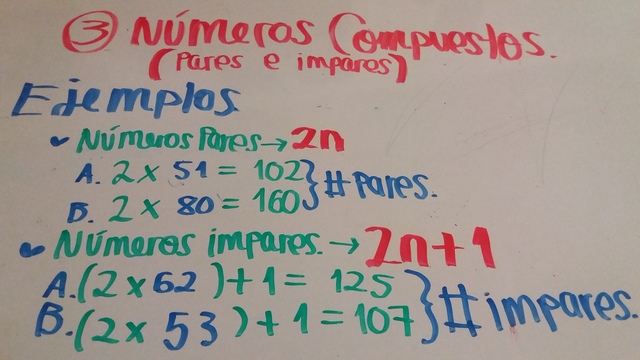 ③ Números Compuestos.
(Pares e impares)
Ejemplos
Números Pares → 2n
A. 2 x 51 = 102
B. 2 x 80 = 160 } # Pares.
Números impares. → 2n+1
A. (2 x 62 ) + 1 = 125
B. (2 x 53 ) + 1 = 107 } # impares.